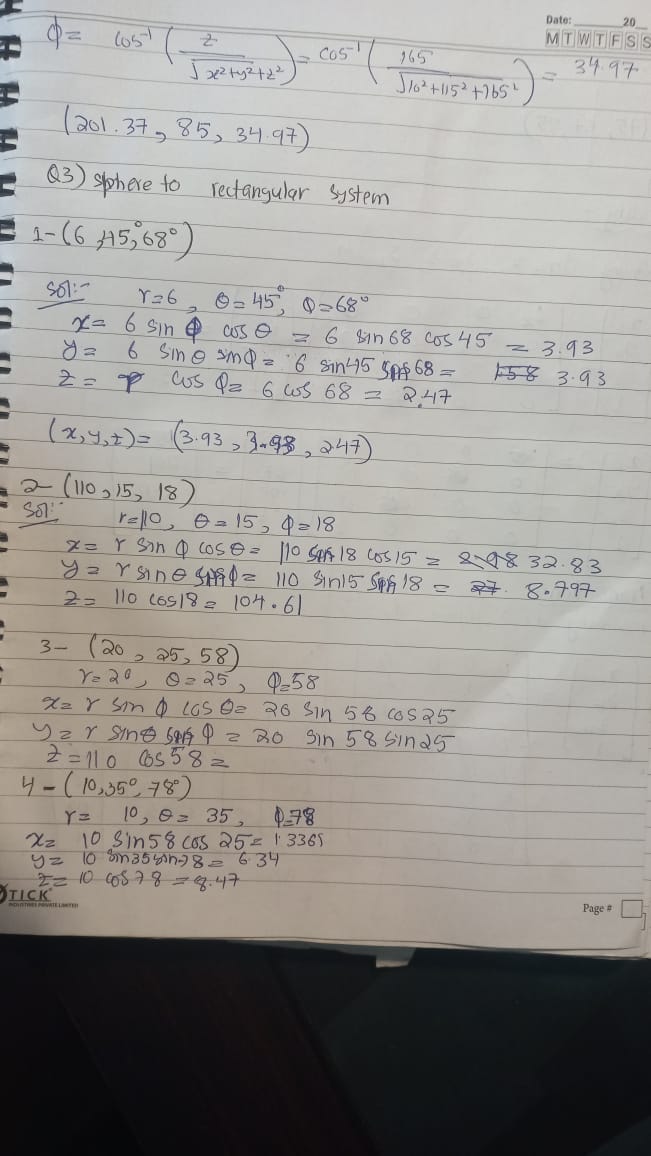 Date: 20
M T W T F S S
Φ = cos⁻¹ ( z / √x²+y²+z² ) = cos⁻¹ ( 165 / √10²+115²+165² ) = 34.97
(201.37, 85, 34.97)
Q3) sphere to rectangular system
1- (6, 45,° 68°)
Sol:- r=6, θ=45°, Φ=68°
x= 6 sin Φ cos θ = 6 sin 68 cos 45 = 3.93
y= 6 sin θ sin Φ = 6 sin 45 sin 68 = 3.93
z= r cos Φ = 6 cos 68 = 2.47
(x,y,z)= (3.93, 3.93, 247)
2- (110, 15, 18)
Sol:- r=110, θ=15, Φ=18
x= r sin Φ cos θ = 110 sin 18 cos 15 = 32.83
y= r sin θ sin Φ = 110 sin 15 sin 18 = 8.797
z= 110 cos 18 = 104.61
3- (20, 25, 58)
r=20, θ=25, Φ=58
x= r sin Φ cos θ = 20 sin 58 cos 25
y= r sin θ sin Φ = 20 sin 58 sin 25
z = 110 cos 58 =
4- (10, 35°, 78°)
r= 10, θ= 35, Φ=78
x= 10 sin 58 cos 25 =
y= 10 sin 35 sin 78 = 6.34
z= 10 cos 78 = 8.47
TICK
INDUSTRIES PRIVATE LIMITED
Page #